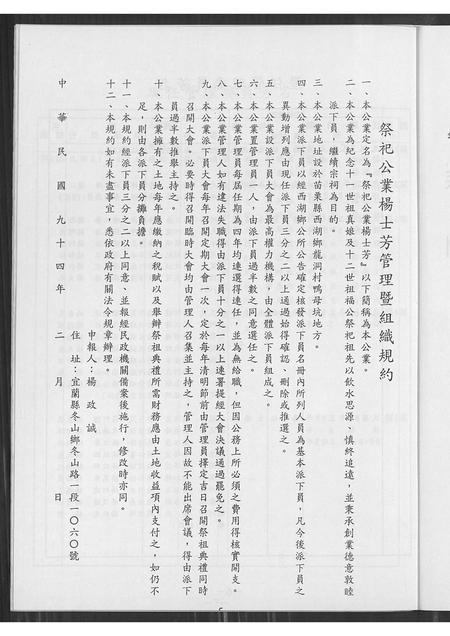 祭祀公業楊士芳管理暨組織規約
一、本公業定名為『祭祀公業楊士芳』以下簡稱為本公業。
二、本公業為紀念十一世祖真娘及十二世祖福公祭祀祖先以飲水思源、慎終追遠，並秉承創業德意敦睦
派下員，繼續宗祠為目的。
三、本公業地址設於苗栗縣西湖鄉龍洞村鴨母坑地方。
四、本公業派下員以經西湖鄉公所公告確定核發派下員名冊內所列人員為基本派下員，凡今後派下員之
異動增列應由現任派下員三分之二以上通過始得確認、刪除或推選之。
五、本公業設派下員大會為最高權力機構，由全體派下員組成之。
六、本公業置管理員一人，由派下員過半數之同意選任之。
七、本公業管理員每屆任期為四年均連選得連任，並為無給職，但因公務上所必須之費用得核實開支。
八、本公業管理人如有違法失職得由派下員十分之一以上連署提經大會決議通過罷免之。
九、本公業派下員大會每年召開定期大會一次，定於每年清明節前由管理員擇定吉日召開祭祖典禮同時
召開大會。必要時得召開臨時大會均由管理人召集並主持之，管理人因故不能出席會議，得由派下
員過半數推舉主持之。
十、本公業擁有之土地每年應繳納之稅賦以及舉辦祭祖典禮所需財務應由土地收益項內支付之，如仍不
足，則由各派下員分攤負擔。
十一、本規約經派下員三分之二以上同意、並報經民政機關備案後施行，修改時亦同。
十二、本規約如有未盡事宜，悉依政府有關法令規章辦理。
申報人：楊政誠
住址：宜蘭縣冬山鄉冬山路一段一０六０號
中華民國九十四年二月日